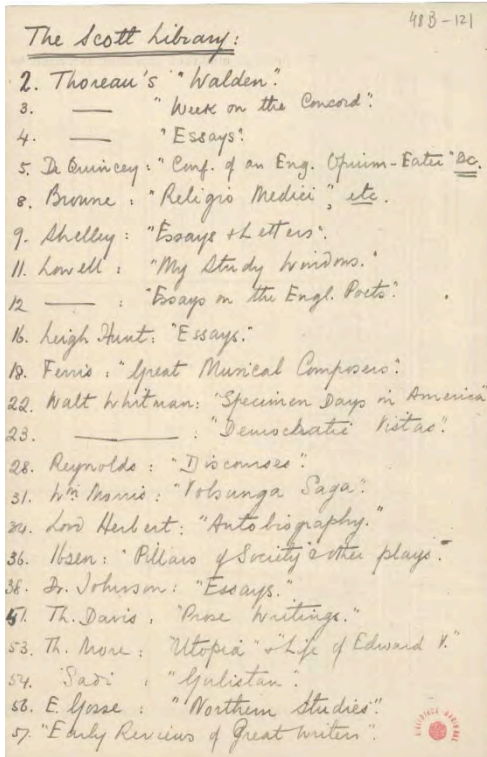 48B-121
The Scott Library:
2. Thoreau's "Walden".
3. —— "Week on the Concord".
4. —— "Essays".
5. De Quincey: "Conf. of an Eng. Opium-Eater" &c.
8. Browne: "Religio Medici", etc.
9. Shelley: "Essays & Letters".
11. Lowell: "My Study Windows."
12 ——: "Essays on the Engl. Poets".
16. Leigh Hunt: "Essays."
18. Ferris: "Great Musical Composers".
22. Walt Whitman: "Specimen Days in America"
23. ——: "Democratic Vistas".
28. Reynolds: "Discourses".
31. Wm Morris: "Volsunga Saga".
34. Lord Herbert: "Autobiography."
36. Ibsen: "Pillars of Society" & other plays.
38. Dr. Johnson: "Essays."
51. Th. Davis: "Prose Writings."
53. Th. More: "Utopia" & "Life of Edward V."
54. Sadi: "Gulistan".
56. E. Gosse: "Northern Studies".
57. "Early Reviews of Great Writers".